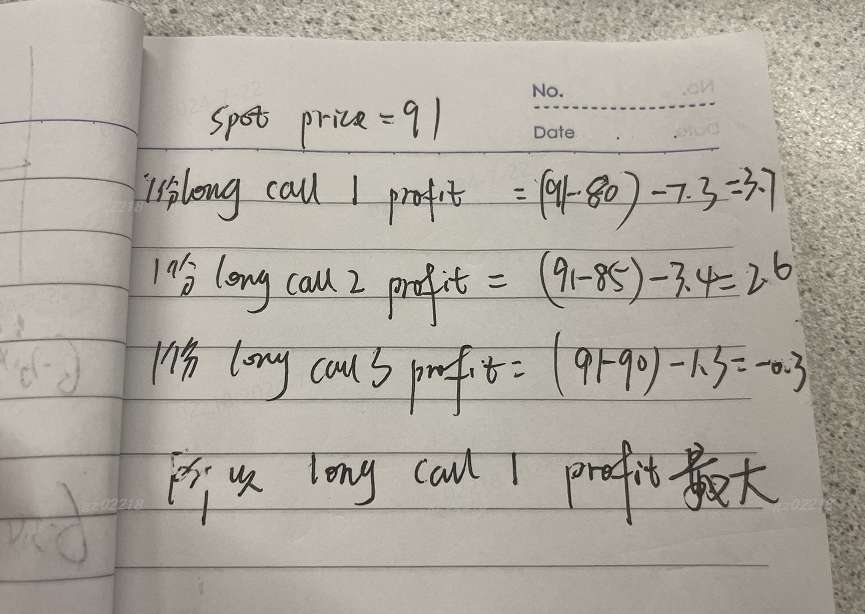 No.
Date
spot price = 91
1份long call 1 profit = (91-80) - 7.3 = 3.7
1份 long call 2 profit = (91-85) - 3.4 = 2.6
1份 long call 3 profit = (91-90) - 1.3 = -0.3
所以 long call 1 profit 最大